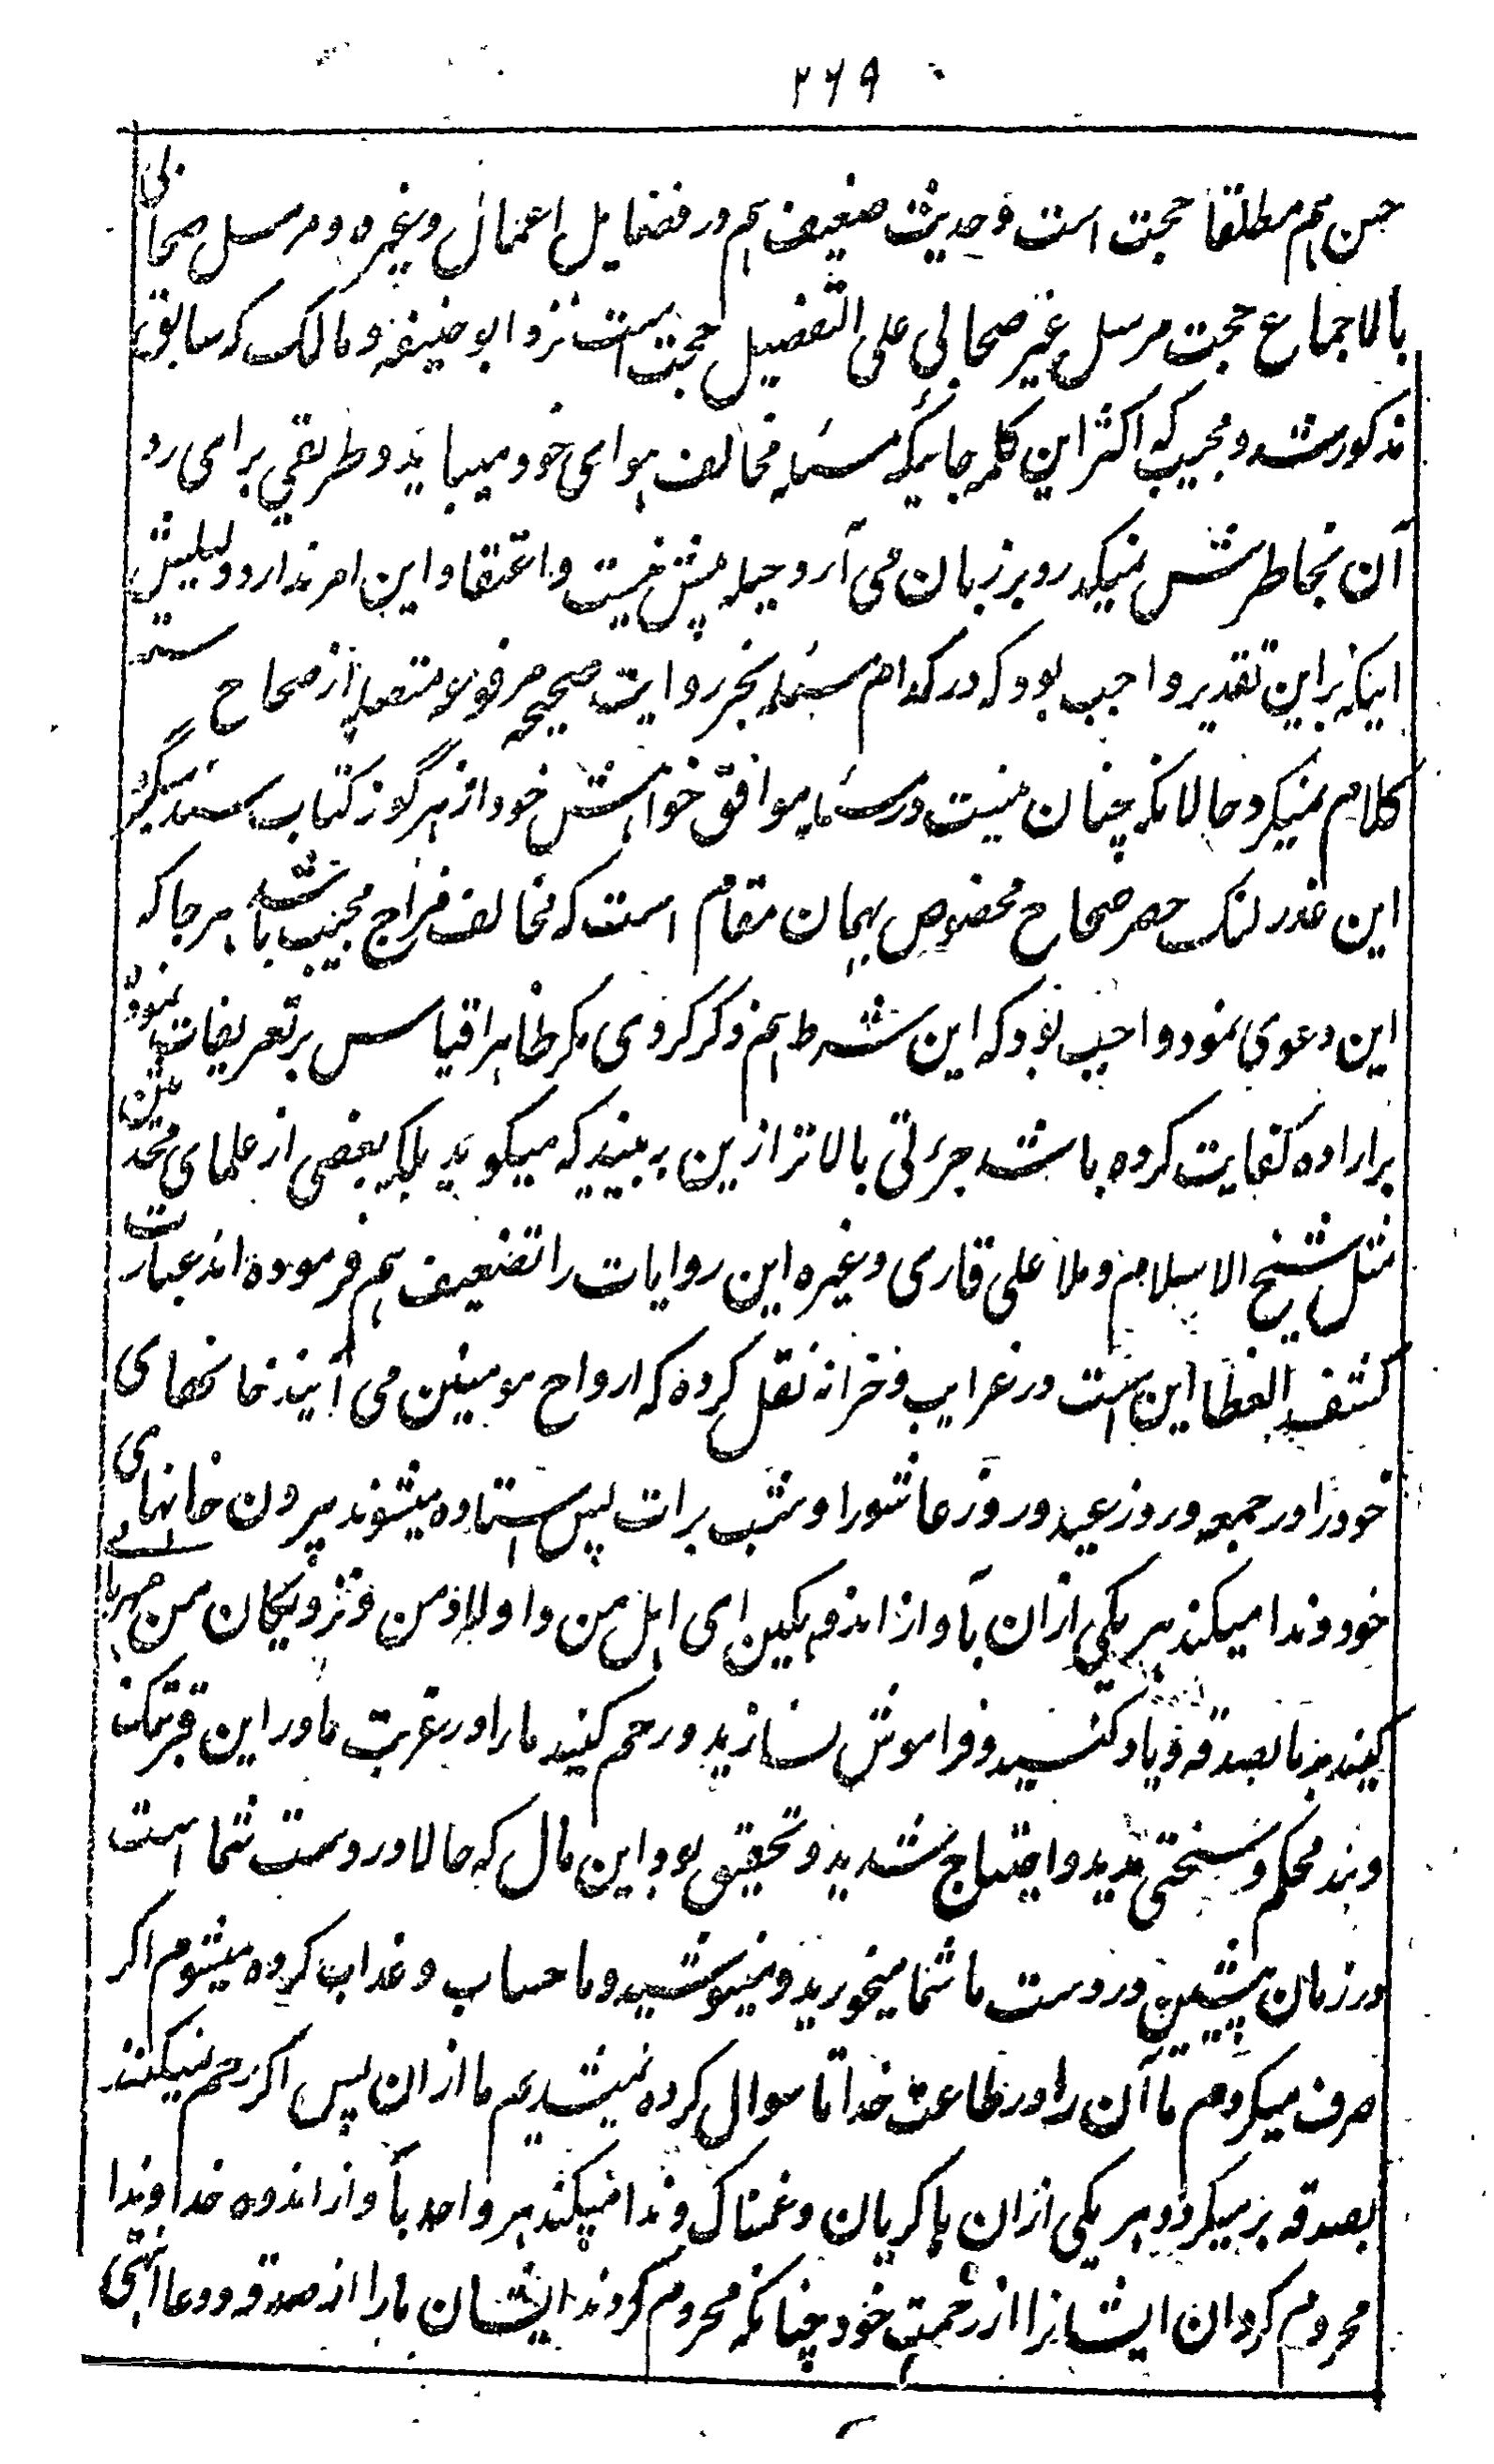 ۲۶۹
حسن هم مطلقا حجت است و حدیث ضعیف هم در فضایل اعمال و غیره و مرسل صحابی
بالاجماع حجت مرسل غیر صحابی علی التفصیل حجت است نزد ابو حنیفه و مالک که سابق
مذکور شد و مجیب که اکثر این کلمه جائیکه مسئله مخالف هوای خود میباید و طریقی برای رد
آن بخاطرش نمیگذرد بر زبان می آرد حیله پیش نیست و اعتقاد این امر ندارد دلیلش
اینکه بر این تقدیر واجب بود که در کدام مسئله بجز روایت صحیحه مرفوعه متصله از صحاح سته
کلام نمیکرد حالانکه چنان نیست در مسئله موافق خواهش خود از هرگونه کتاب سند میگیرد
این قدر لنک حصر صحاح مخصوص بهمان مقام است که مخالف مزاج مجیب باشد هر جا که
این دعوی نمود واجب بود که این شرط هم ذکر کردی مگر ظاهرا قیاس بر تعریفات نموده
بر اراده کفایت کرده باشد جرئتی بالاتر ازین به بینید که میگوید بلکه بعضی از علمای محدثین
مثل شیخ الاسلام و ملا علی قاری و غیره این روایات را تضعیف هم فرموده اند عبارت
کشف الغطا این است در غرایب و خزانه نقل کرده که ارواح مومنین می آیند خانهای
خود را در جمعه و روز عید و روز عاشورا و شب برات پس استاده میشوند بیرون خانهای
خود و ندا میکند هر یکی ازان بآواز اندوهگین ای اهل من و اولاد من و نزدیکان من مهربانی
کنید بر ما بصدقه و یاد کنید و فراموش نسازید و رحم کنید ما را در غربت ما در این قبر تنگ
و بند محکم و سختی مدید و احتیاج شدید و تحقیق بود این مال که حالا در دست شما است
در زمان پیشین در دست ما شما میخورید و مینوشید و ما حساب و عذاب کرده میشوم اگر
صرف میکردم ما آن را در طاعت خدا تا سوال کرده نمیشدیم ما ازان پس اگر رحم نمیکنند
بصدقه بر میگردد هر یکی ازان با گریان و غمناک و ندا میکند هر واحد بآواز اندوه خداوندا
محروم گردان ایشانرا از رحمت خود چنانکه محروم کردند ایشان ما را از صدقه و دعا انتهی